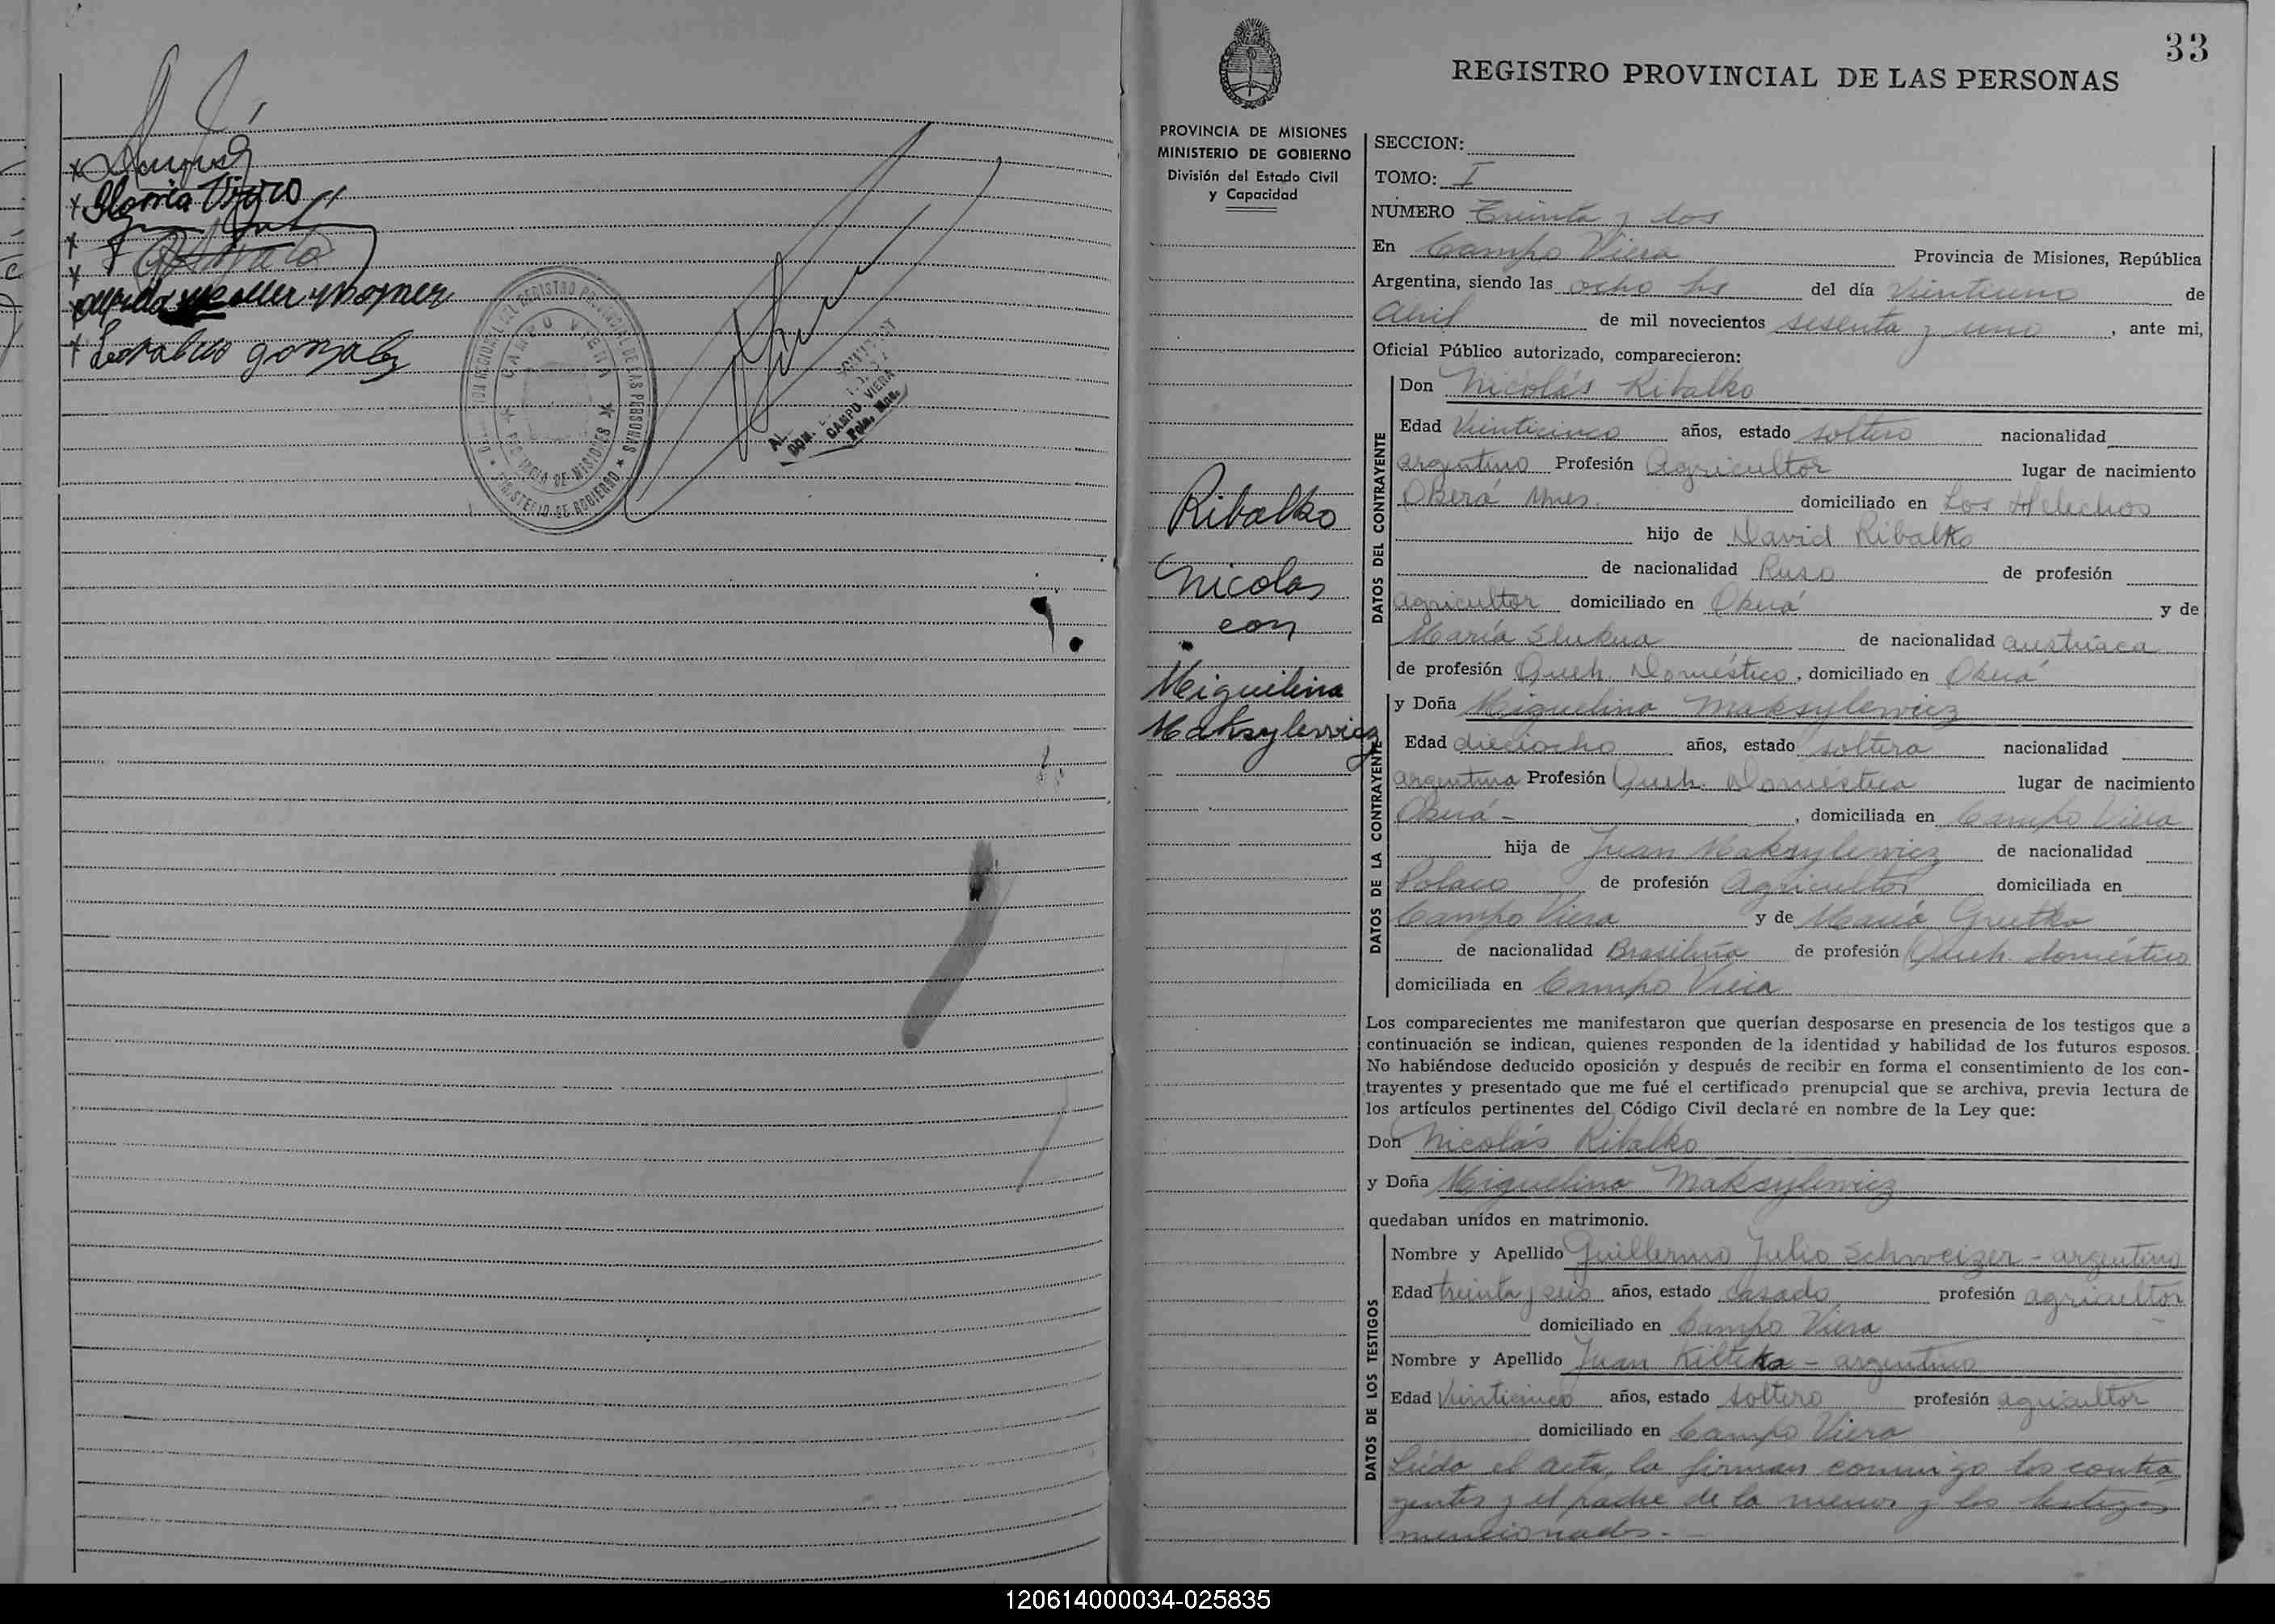 Gloria
gonzalez
CAMPO VIERA
MINISTERIO DE GOBIERNO
CAMPO VIERA
33
REGISTRO PROVINCIAL DE LAS PERSONAS
PROVINCIA DE MISIONES
MINISTERIO DE GOBIERNO
División del Estado Civil
y Capacidad
Ribalko
Nicolas
con
Miguelina
Maksylewicz
SECCION:
TOMO: I
NUMERO Treinta y dos
En Campo Viera Provincia de Misiones, República
Argentina, siendo las ocho hs del día Veintiuno de
Abril de mil novecientos sesenta y uno, ante mi,
Oficial Público autorizado, comparecieron:
DATOS DEL CONTRAYENTE
Don Nicolás Ribalko
Edad Veinticinco años, estado soltero nacionalidad
argentino Profesión Agricultor lugar de nacimiento
Oberá Mnes. domiciliado en Los Helechos
hijo de David Ribalko
de nacionalidad Ruso de profesión
agricultor domiciliado en Oberá y de
María de nacionalidad austríaca
de profesión Queh. Doméstico, domiciliado en Oberá
DATOS DE LA CONTRAYENTE
y Doña Miguelina Maksylewicz
Edad dieciocho años, estado soltera nacionalidad
argentina Profesión Queh. Doméstica lugar de nacimiento
Oberá -, domiciliada en Campo Viera
hija de Juan Maksylewicz de nacionalidad
Polaco de profesión Agricultor domiciliada en
Campo Viera y de María
de nacionalidad Brasileña de profesión Queh. doméstico
domiciliada en Campo Viera
Los comparecientes me manifestaron que querían desposarse en presencia de los testigos que a
continuación se indican, quienes responden de la identidad y habilidad de los futuros esposos.
No habiéndose deducido oposición y después de recibir en forma el consentimiento de los con-
trayentes y presentado que me fué el certificado prenupcial que se archiva, previa lectura de
los artículos pertinentes del Código Civil declaré en nombre de la Ley que:
Don Nicolás Ribalko
y Doña Miguelina Maksylewicz
quedaban unidos en matrimonio.
DATOS DE LOS TESTIGOS
Nombre y Apellido Guillermo Julio Schweizer - argentino
Edad treinta y seis años, estado casado profesión agricultor
domiciliado en Campo Viera
Nombre y Apellido Juan - argentino
Edad Veinticinco años, estado soltero profesión agricultor
domiciliado en Campo Viera
Leída el acta, la firman conmigo los contra
yentes y el padre de la menor y los testigos
mencionados.-
120614000034-025835